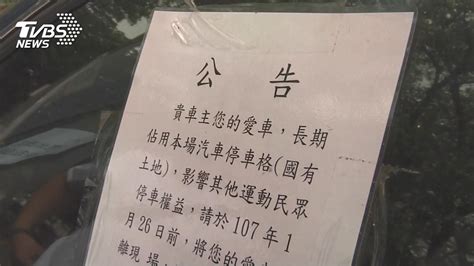 TVBS
NEWS
公告
貴車主您的愛車，長期
佔用本場汽車停車格(國有
土地)，影響其他運動民眾
停車權益，請於107年1
月26日前，將您的愛車
離現場